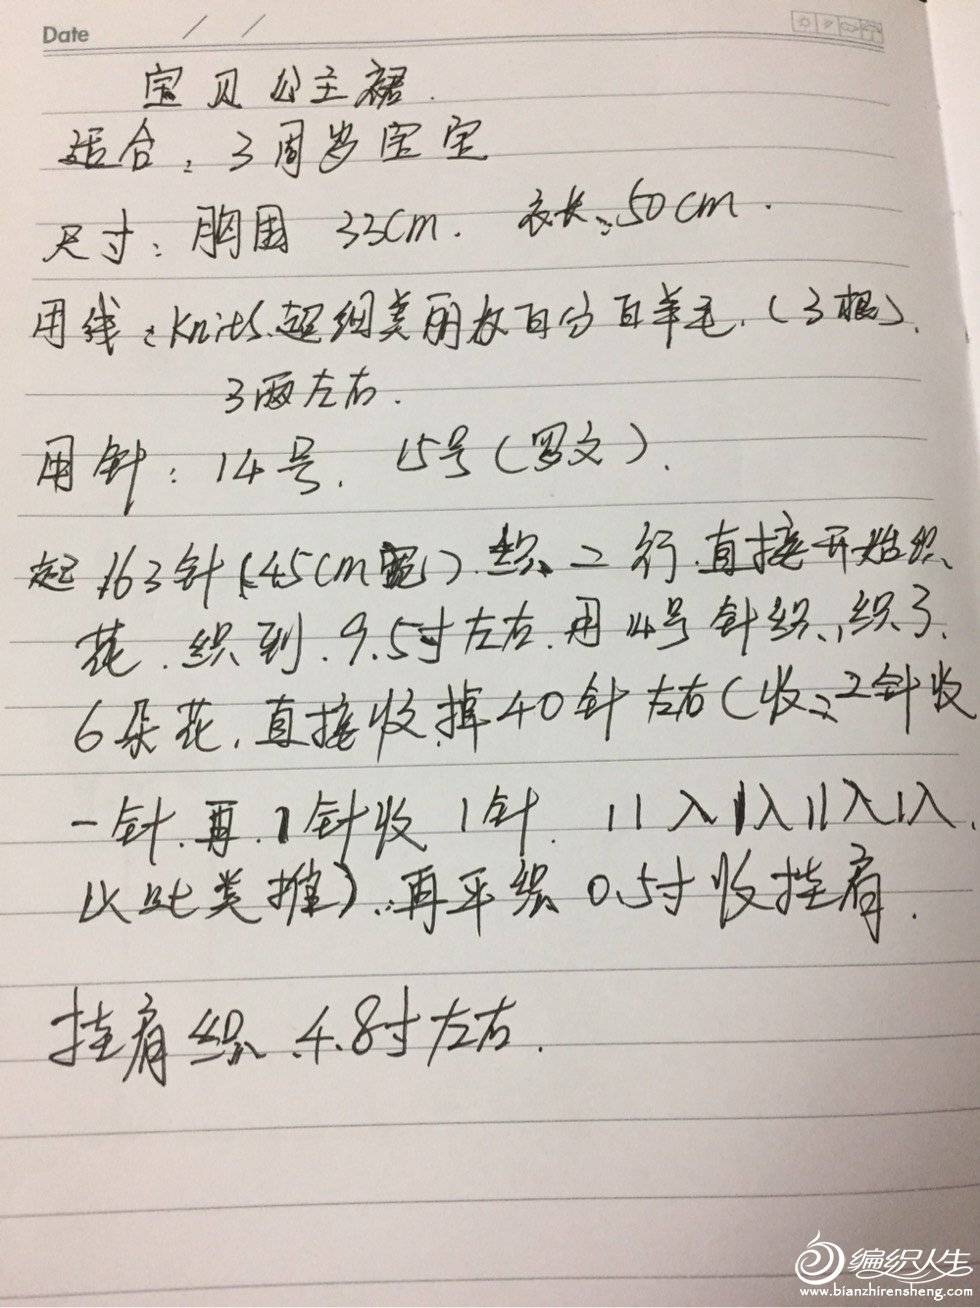 Date / /
宝贝公主裙.
适合:3周岁宝宝
尺寸:胸围 33cm. 衣长:50cm.
用线:Knits.超细美丽奴百分百羊毛.(3根).
3两左右.
用针:14号. 15号(罗文).
起163针(45cm宽).织2行.直接开始织
花.织到.9.5寸左右.用14号针织.,织了.
6朵花.直接收.掉40针左右(收:2针收
一针.再.1针收1针. 11入1入11入1入.
以此类推).再平织0.5寸收挂肩.
挂肩织.4.8寸左右.
编织人生
www.bianzhirensheng.com